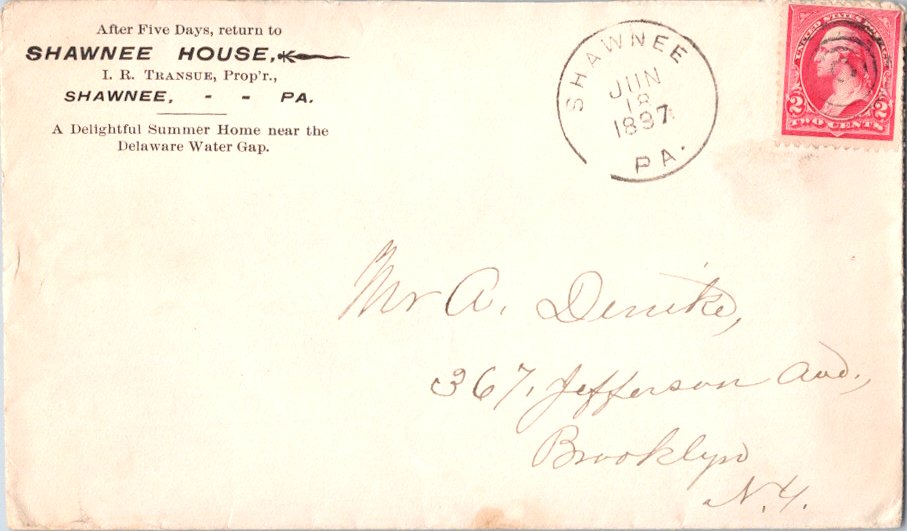 After Five Days, return to
SHAWNEE HOUSE,
I. R. TRANSUE, Prop'r.,
SHAWNEE, - - PA.
A Delightful Summer Home near the
Delaware Water Gap.
SHAWNEE
JUN
18
1897
PA.
UNITED STATES
2 2
TWO CENTS
Mr A. Denike,
367, Jefferson Ave.,
Brooklyn
N.Y.